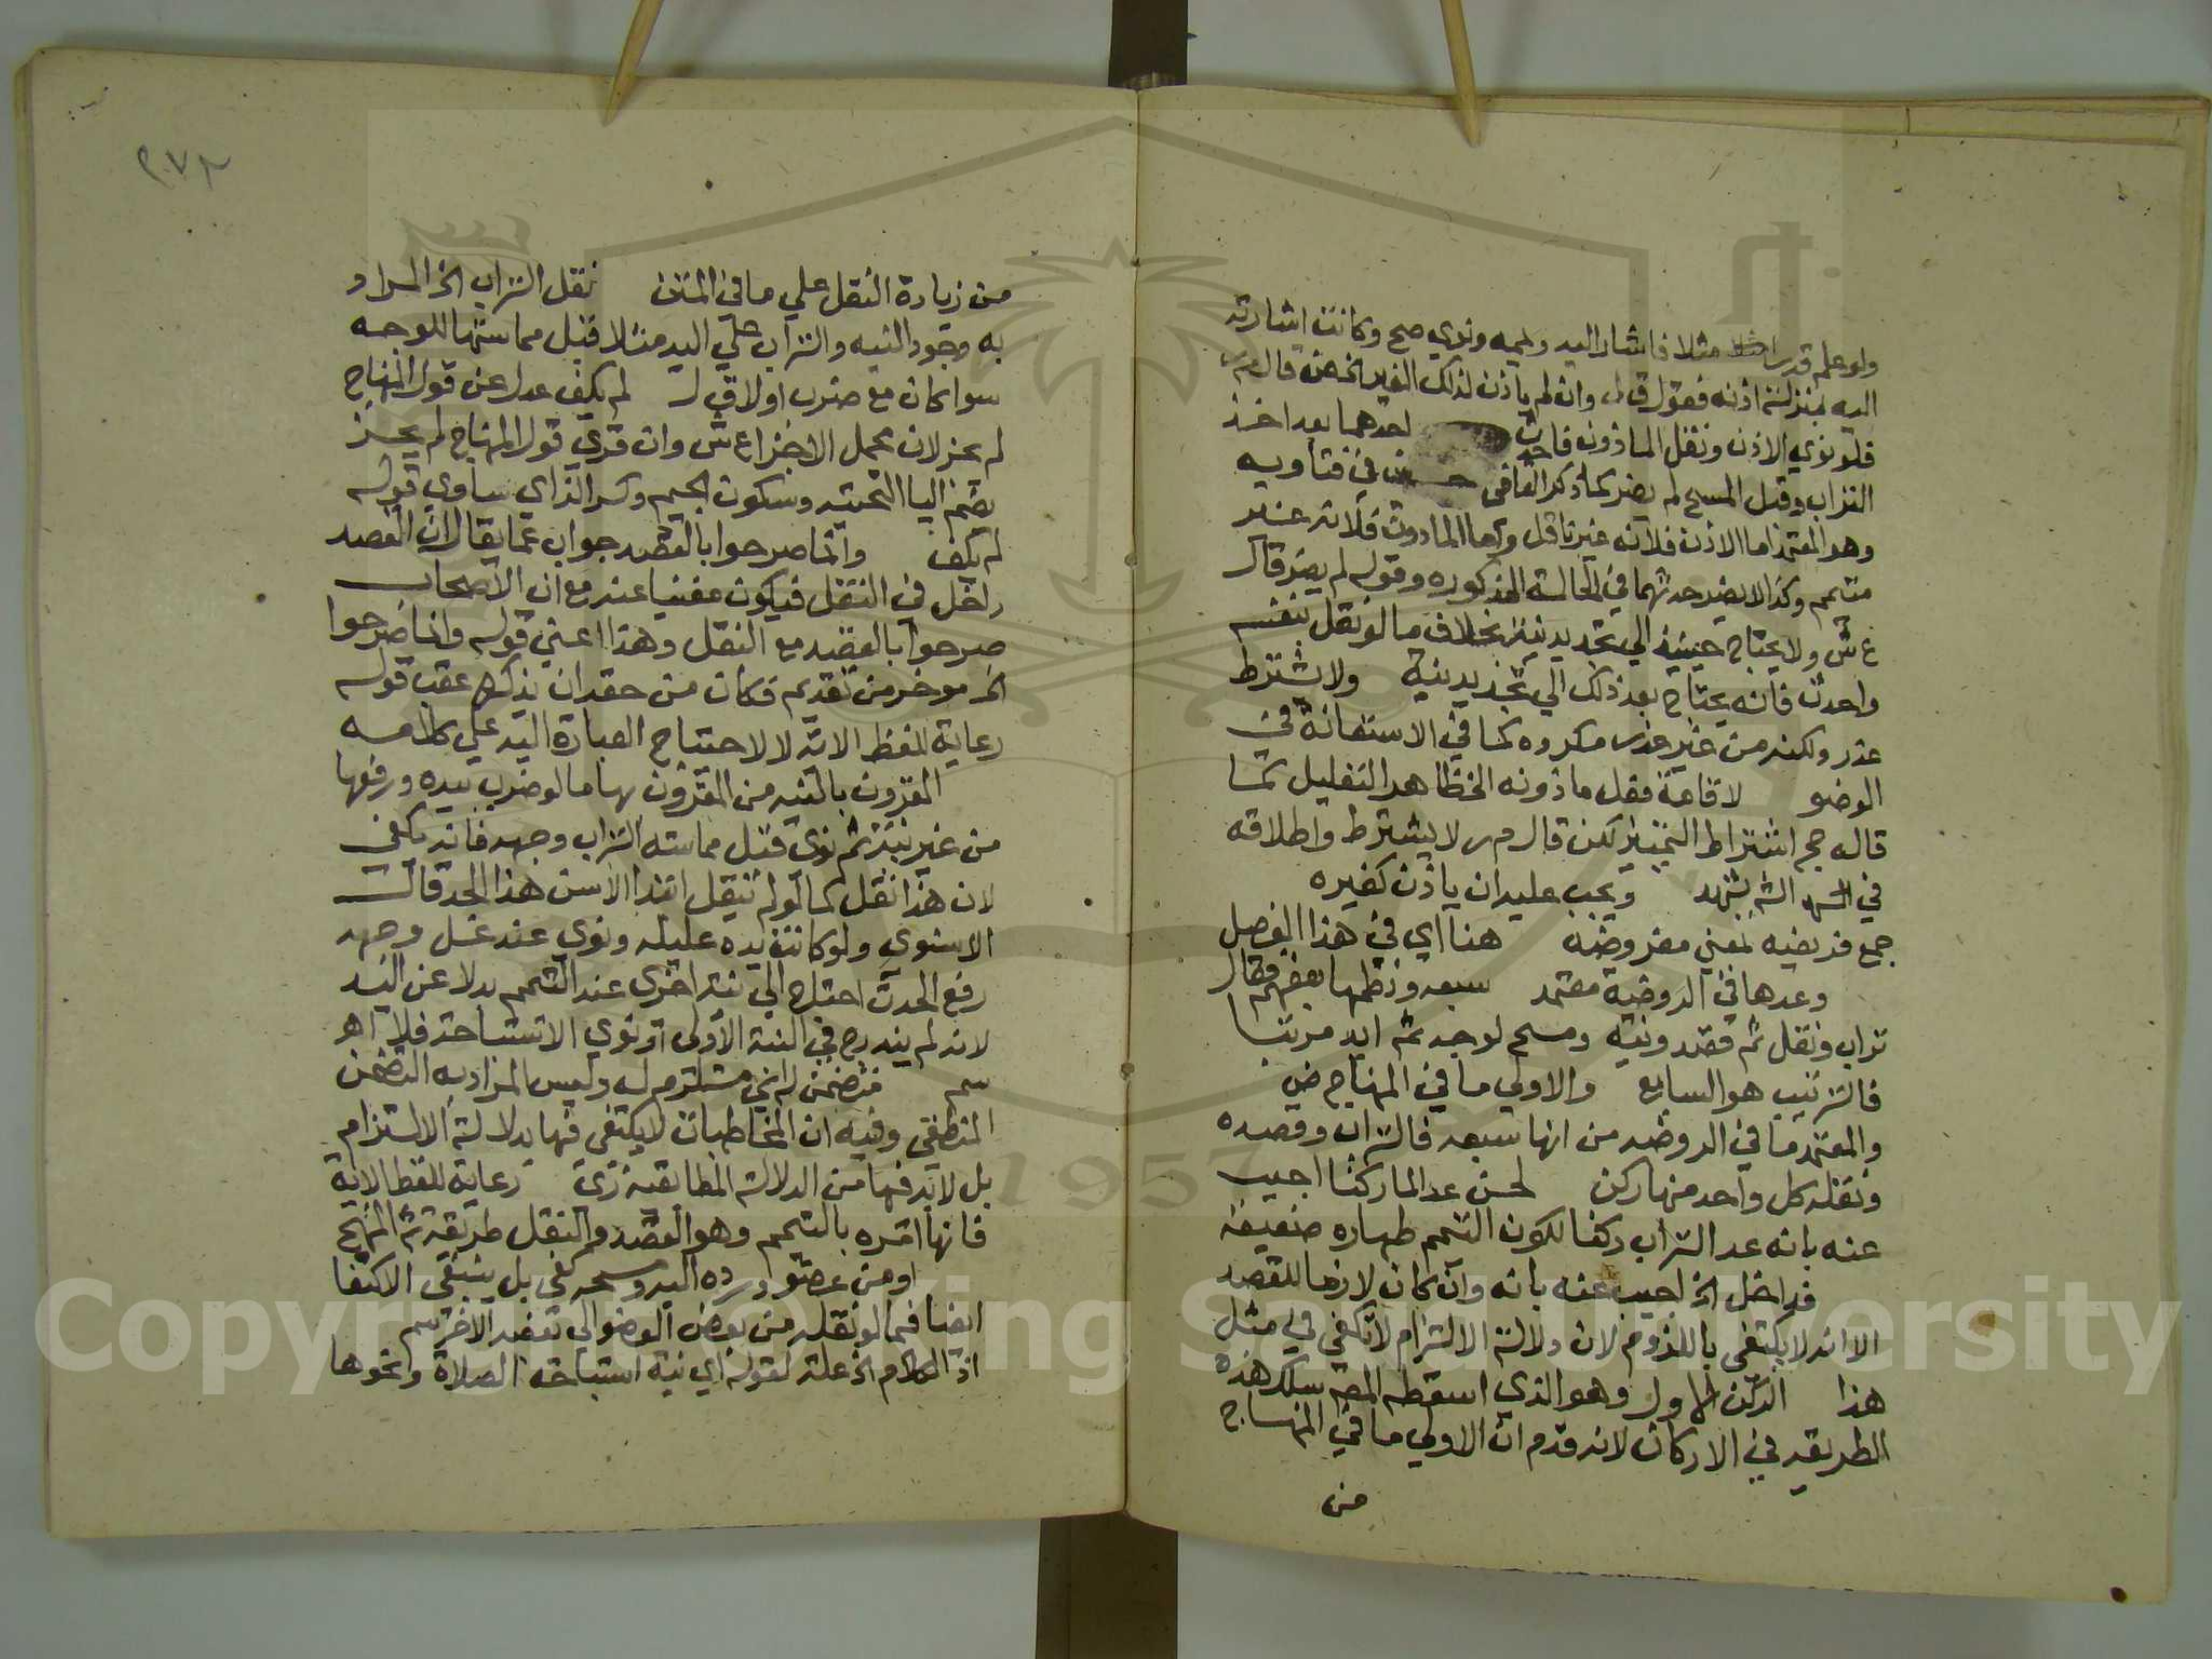 ولو علم قدر مثلا فاشار اليه ويممه ونوي صح وكانت اشارته
اليه بمنزلة اذنه فقول ق ل وان لم ياذن لذلك الغير الخ ض قال م ر
فلو نوي الاذن ونقل الماذونه فاحدث احدهما بعد اخذ
التراب وقبل المسح لم يضر كما ذكر القاضي حسين في فتاويه
وهو المعتمد اما الاذن فلانه غير ناقل واما الماذون فلانه غير
متيمم وكذا لا يضر حدثهما في الحالة المذكوره وقوله لم يضر قال
ع ش ولا يحتاج حينئذ الي تجديد نية بخلاف ما لو نقل بنفسه
واحدث فانه يحتاج بعد ذلك الي تجديد نية ولا يشترط
عذر ولكنه من غير عذر مكروه كما في الاستعانة في
الوضو لاقامة فعل ماذونه الخ ظاهر التعليل كما
قاله حج اشتراط التمييز لكن قال م ر لا يشترط واطلاقه
في ويجب عليه ان ياذن كغيره
جمع فريضه بمعني مفروضه هنا اي في هذا الفصل
وعدها في الروضة معتمد سبعه ونظمها بعضهم فقال
تراب ونقل ثم قصد ونية ومسح لوجه ثم ايد مرتبا
فالترتيب هو السابع والاولي ما في المنهاج ض
والمعتمد ما في الروضه من انها سبعه فالتراب وقصده
ونقله كل واحد منها ركن لحسن عد الما ركنا اجيب
عنه بانه عد التراب ركنا لكون التيمم طهاره ضعيفه
فداخل الخ اجيب عنه بانه وان كان لازما للقصد
الا انه لا يكتفي باللزوم لان دلالة الالتزام لا تكفي في مثل
هذا الركن الاول وهو الذي اسقطه المصـ سلك هذه
الطريقه في الاركان لانه قدم ان الاولي ما في المنهاج
من
٢٧٣
من زيادة النقل علي ما في المتن نقل التراب الخ المراد
به وجود النيه والتراب علي اليد مثلا قبل مماستها للوجه
سوا كان مع ضرب اولا ق ل لم يكف عدل عن قول المنهاج
لم يجز لان محمل الاجزاع ش وان قري قول المنهاج لم يجز
بضم اليا التحتيه وسكون الجيم وكسر الزاي ساوي قوله
لم يكف وانما صرحوا بالقصد جواب عما يقال ان القصد
داخل في النقل فيكون مغنيا عنه مع ان الاصحاب
صرحوا بالقصد مع النقل وهذا اعني قوله وانما صرحوا
الخ موخر من تقديم فكان من حقه ان يذكره عقب قوله
رعاية للفظ الاية لا لاحتياج العبارة اليه علي كلامه
المقرون بالنيه من المقرون بها ما لو ضرب بيده ورفعها
من غير نية ثم نوي قبل مماسته التراب وجهه فانه يكفي
لان هذا نقل كما لو لم ينقل ابتدا الا من هذا الحد قال
الاسنوي ولو كانت يده عليله ونوي عند غسل وجهه
رفع الحدث احتاج الي نية اخري عند التيمم بدلا عن اليد
لانه لم يندرج في النية الاولي او نوي الاستباحة فلا اهـ
سم فتضمن له اي مستلزم له وليس المراد به التضمن
المنطقي وفيه ان المخاطبات لا يكتفي فيها بدلالة الالتزام
بل لا بد فيها من الدلالة المطابقية زي رعاية للفظ الاية
فانها امره بالتيمم وهو القصد والنقل طريقة ش المنهج
او من عضو ورده اليه ومسحه كفي بل ينبغي الاكتفا
ايضا فيما لو نقله من بعض العضو الي بعضه الاخر سم
اذ الكلام الخ علة لقوله اي نية استباحة الصلاة ونحوها
Copyright © King Saud University
1957